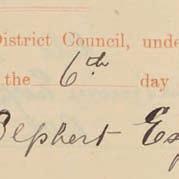 District Council, unde
the 6th day
Olphert Esq